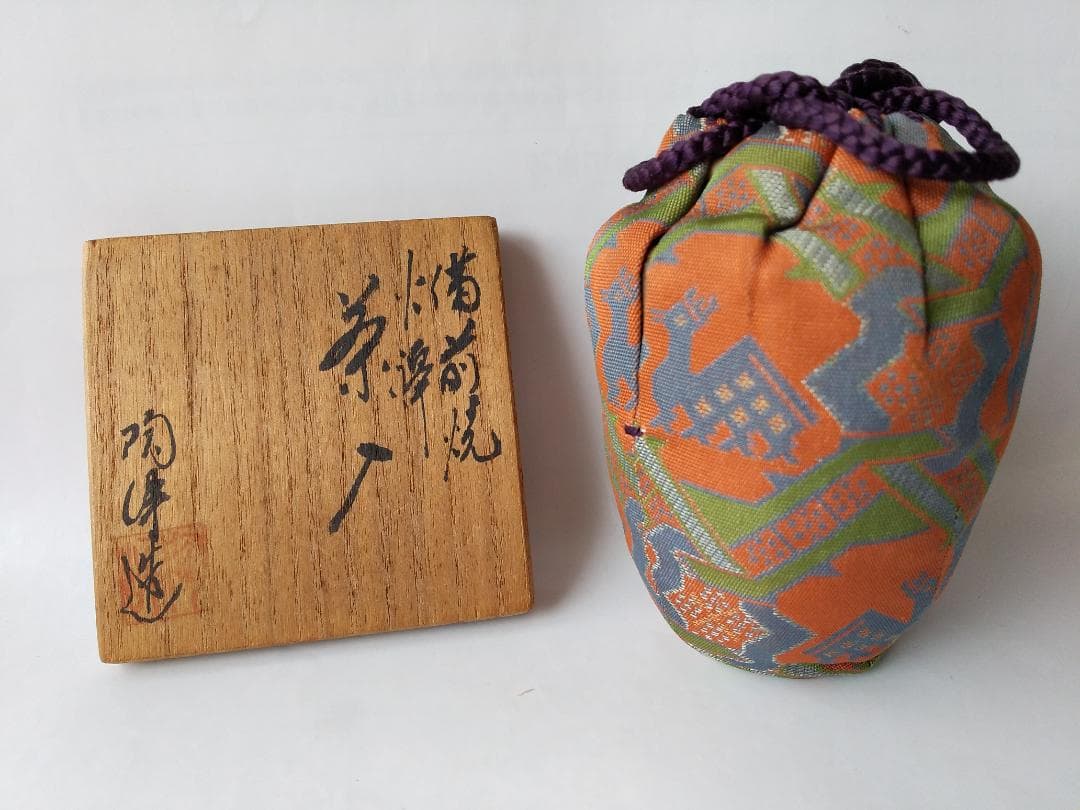 備前焼
火襷
茶入
陶峰造